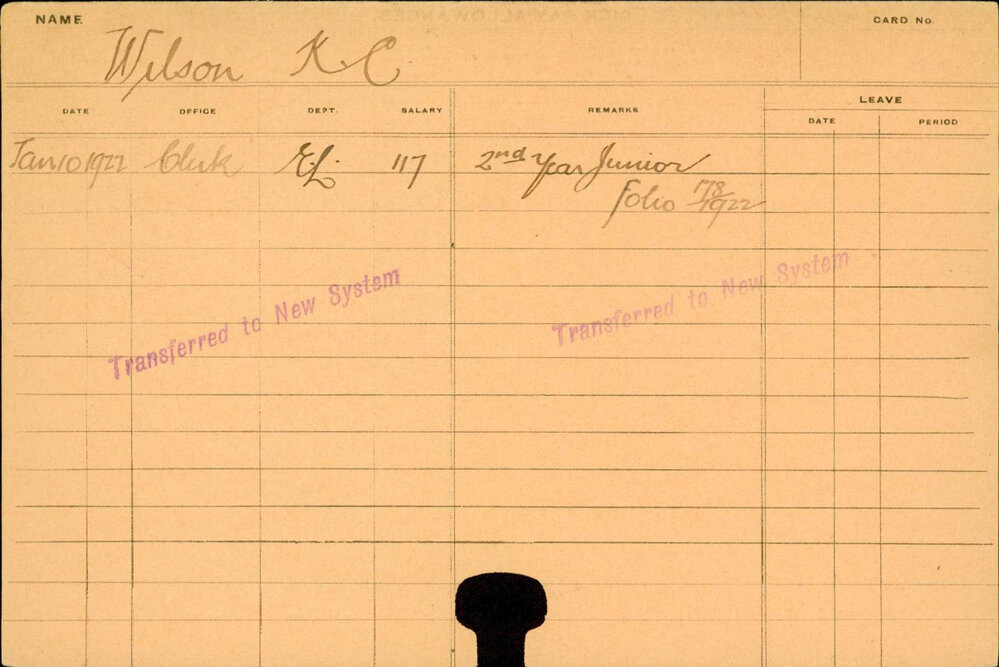 NAME
CARD No.
Wilson K C
LEAVE
DATE OFFICE DEPT. SALARY REMARKS DATE PERIOD
Jan 10 1922 Clerk E.L. 117 2nd Year Junior
Folio 178/1922
Transferred to New System Transferred to New System